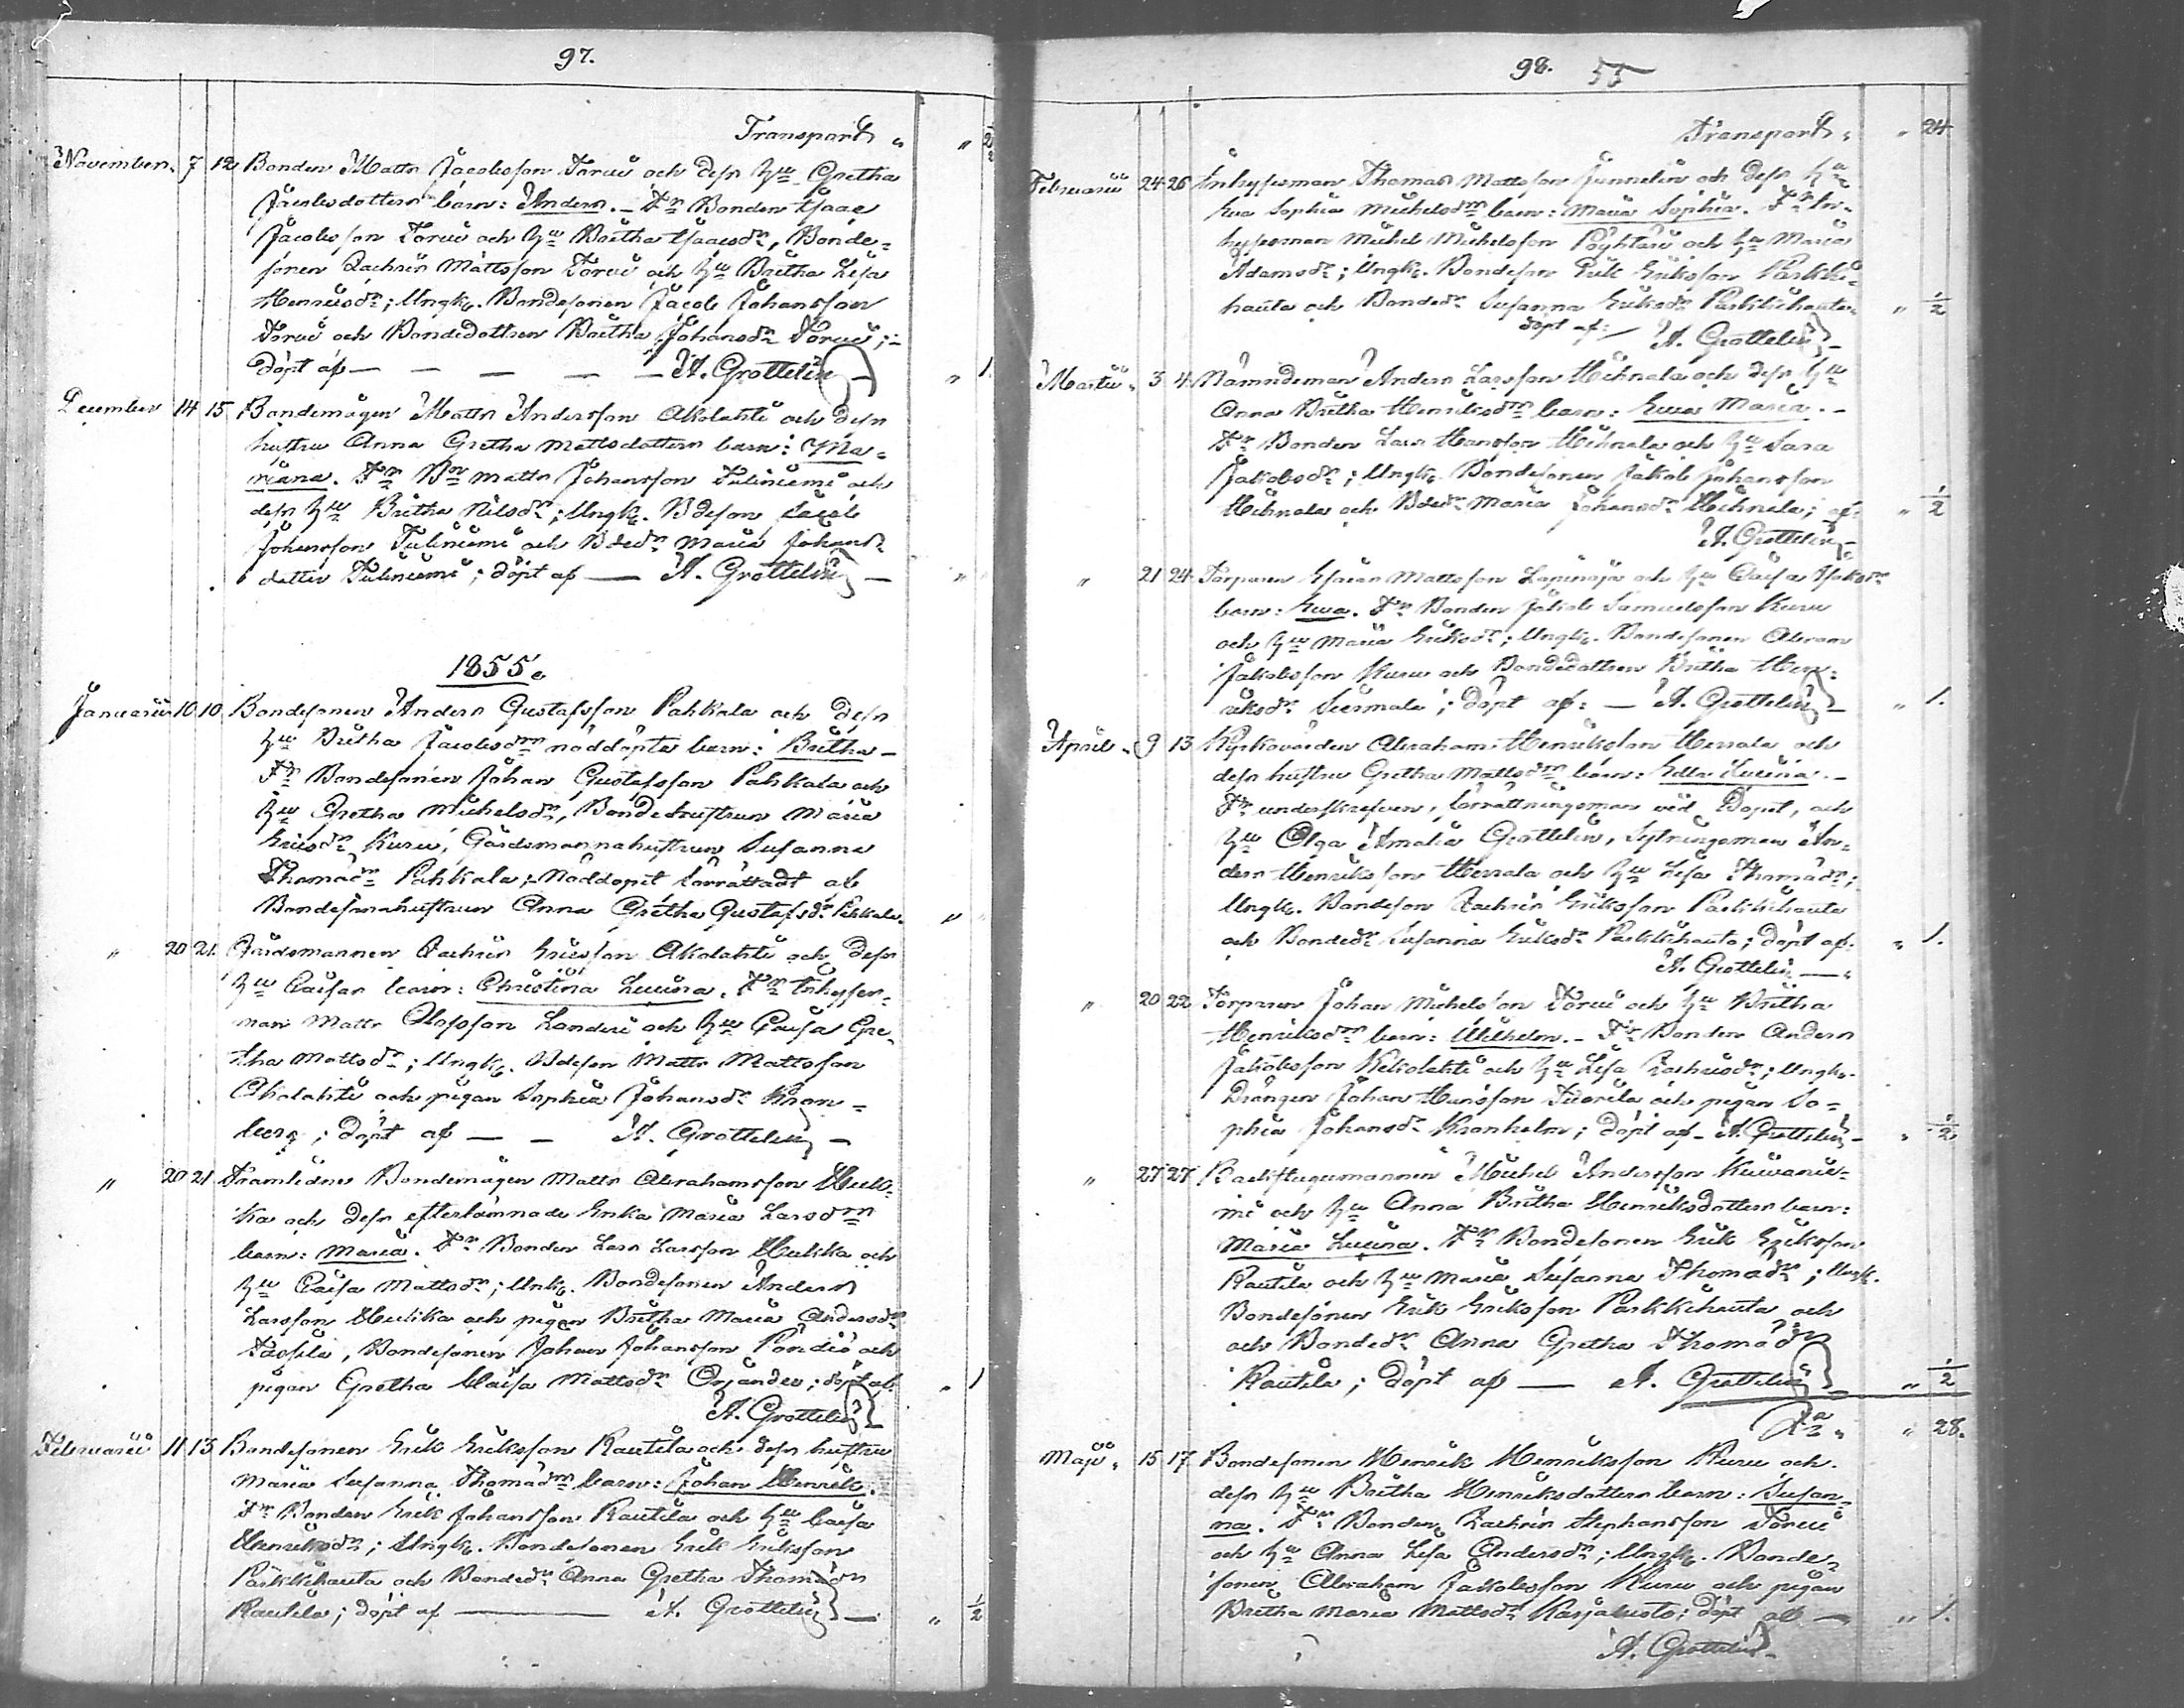 97.
Transport "
November. 7 12 Bonden Matts Jacobsson Torvi och dess hu Gretha
Jacobsdotters barn: Anders. – Fr Bonden Isaac
Jacobsson Torvi och hu Britha Isaacsdr, Bonde-
sonen Zachris Mattsson Torvi och hu Britha Lisa
Henricsdr; Ungk. Bondesonen Jacob Johansson
Torvi och Bondedottren Britha Johansdr Torvi; –
döpt af — — — — — A. Grottelin — " 1.
December 14 15 Bondemågen Matts Andersson Akolahti och dess
hustru Anna Gretha Mattsdotters barn: Ma-
riana. Fr Bn Matts Johansson Tuliniemi och
dess hu Britha Nilsdr; Ungk. Bdeson Jacob
Johansson Tuliniemi och Bdedr Maria Johans-
dotter Tuliniemi; döpt af — A. Grottelin — "
1855.
Januarii 10 10 Bondesonen Anders Gustafsson Pahkala och dess
hu Britha Jacobsdrs nöddöpta barn: Britha –
Fr Bondesonen Johan Gustafsson Pahkala och
hu Gretha Michelsdr, Bondehustrun Maria
Ericsdr Kuru, Gårdsmannahustrun Susanna
Thomædr Pahkala; Nöddopet förrättadt af
Bondesonahustrun Anna Gretha Gustafsdr Pahkala. "
" 20 21. Gårdsmannen Zachris Ericsson Akolahti och dess
hu Caisas barn: Christina Lovisa. Fr Inhyses-
man Matts Olofsson Landeri och hu Caisa Gre-
tha Mattsdr; Ungk. Bdeson Matts Mattsson
Akolahti och pigan Sophia Johansdr Kron-
berg; döpt af — — A. Grottelin —
" 20 21 Framlidne Bondemågen Matts Abrahamsson Mulik-
ka och dess efterlämnade Enka Maria Larsdrs
barn: Maria. Fr Bonden Lars Larsson Mulikka och
hu Caisa Mattsdr; Unk. Bondesonen Anders
Larsson Mulikka och pigan Britha Maria Andersdr
Bondesonen Johan Johansson Pöndiö och
pigan Gretha Caisa Mattsdr Örjander; döpt af " 1
A. Grottelin
Februarii 11 13 Bondesonen Erik Eriksson Rautila och dess hustru
Maria Susanna Thomædrs barn: Johan Henrik.
Fr Bonden Erik Johansson Rautila och hu Caisa
Henriksdr; Ungk. Bondesonen Erik Eriksson
Parkkihauta och Bondedr Anna Gretha Thomædr
Rautila; döpt af — A. Grottelin — " 1/2
98. 55
Transport " " 24
Februarii 24 26 Inhysesman Thomas Mattsson Junnelin och dess hu
Eva Sophia Michelsdrs barn: Maria Sophia. Fr In-
hysesman Michel Michelsson Pöyhtäri och hu Maria
Adamsdr; Ungk. Bondeson Erik Eriksson Parkki-
hauta och Bondedr Susanna Eriksdr Parkkihauta " 1/2
döpt af: — A. Grottelin –
Martii " 3 4. Nämndeman Anders Larsson Hihnala och dess hu
Anna Britha Henriksdrs barn: Eva Maria. –
Fr Bonden Lars Hansson Hihnala och hu Sara
Jakobsdr; Ungk. Bondesonen Jakob Johansson
Hihnala och Bdedr Maria Johansdr Hihnala; af: " 1/2
A. Grottelin –
" 21 24. Torparen Esaias Mattsson Lapinoja och hu Caisa
barn: Eva. Fr Bonden Jakob Samuelsson Kuru
och hu Maria Eriksdr; Ungk. Bondesonen Abram
Jakobsson Kuru och Bondedottren Britha Hen-
riksdr Siermala; döpt af: — A. Grottelin – " 1.
April " 9 13 Kyrkovärden Abraham Henriksson Herrala och
dess hustru Gretha Mattsdrs barn: Edla Lucina. –
Fr underskrefven, förrättningsman vid Dopet, och
hu Olga Amalia Grottelin, Sytningsman An-
ders Henriksson Herrala och hu Lisa Thomædr;
Ungk. Bondeson Zachris Eriksson Parkkihauta
och Bondedr Susanna Eriksdr Parkkihauta; döpt af: " 1.
A. Grottelin —
" 20 22 Torparen Johan Michelsson Torvi och hu Britha
Henriksdrs barn: Wilhelm. – Fr Bonden Anders
Jakobsson Kekolahti och hu Lisa Zachrisdr; Ungk.
Drängen Johan Hansson Tuorila och pigan So-
phia Johansdr Kronholm; döpt af – A. Grottelin – " 1/2
" 27 27 Backstugumannen Michel Andersson Kuivanie-
mi och hu Anna Britha Henriksdotters barn:
Maria Lucina. Fr Bondesonen Erik Eriksson
Rautila och hu Maria Susanna Thomædr; Ungk.
Bondesonen Erik Eriksson Parkkihauta och
och Bondedr Anna Gretha Thomædr
Rautila; döpt af — A. Grottelin " 1/2
" 28.
Maji " 15 17 Bondesonen Henrik Henriksson Kuru och
dess hu Britha Henriksdotters barn: Susan-
na. Fr Bonden Zachris Stephansson Torvi
och hu Anna Lisa Andersdr; Ungk. Bonde-
sonen Abraham Jakobsson Kuru och pigan
Britha Maria Mattsdr Karjalusto; döpt af — " 1.
A. Grottelin